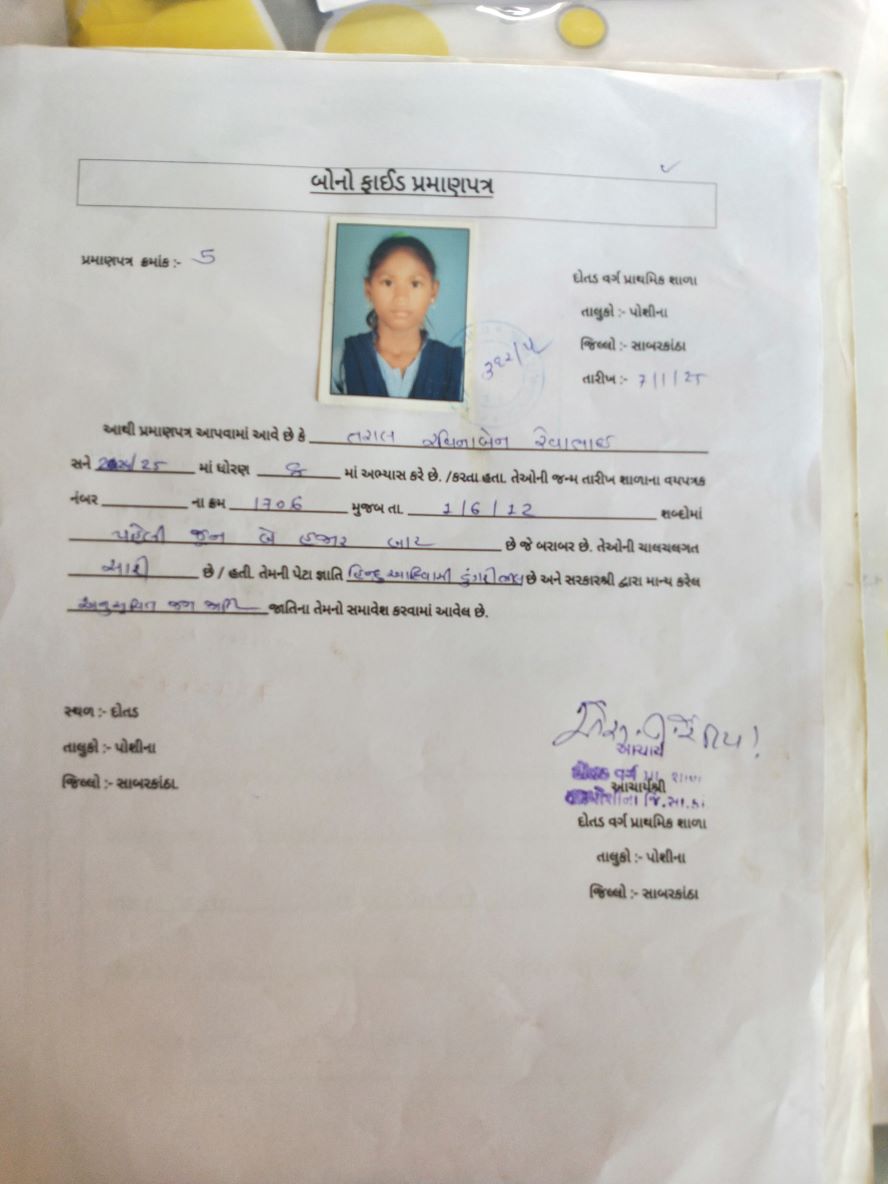 બોનો ફાઈડ પ્રમાણપત્ર
પ્રમાણપત્ર ક્રમાંક :- 5
દોતડ વર્ગ પ્રાથમિક શાળા
તાલુકો :- પોશીના
જિલ્લો :- સાબરકાંઠા
તારીખ :- 7/1/25
આથી પ્રમાણપત્ર આપવામાં આવે છે કે તરાલ રવિનાબેન રેવાભાઈ
સને 2024/25 માં ધોરણ 8 માં અભ્યાસ કરે છે. /કરતા હતા. તેઓની જન્મ તારીખ શાળાના વયપત્રક
નંબર ના ક્રમ 1706 મુજબ તા. 1/6/12 શબ્દોમાં
પહેલી જુન બે હજાર બાર છે જે બરાબર છે. તેઓની ચાલચલગત
સારી છે / હતી. તેમની પેટા જ્ઞાતિ હિન્દુ આદિવાસી ડુંગરી ભીલ છે અને સરકારશ્રી દ્વારા માન્ય કરેલ
અનુસુચિત જન જાતિ જાતિના તેમનો સમાવેશ કરવામાં આવેલ છે.
સ્થળ :- દોતડ
તાલુકો :- પોશીના
જિલ્લો :- સાબરકાંઠા.
આચાર્ય
દોતડ વર્ગ પ્રા. શાળા
આચાર્યશ્રી
પોશીના જિ.સા.કાં
દોતડ વર્ગ પ્રાથમિક શાળા
તાલુકો :- પોશીના
જિલ્લો :- સાબરકાંઠા